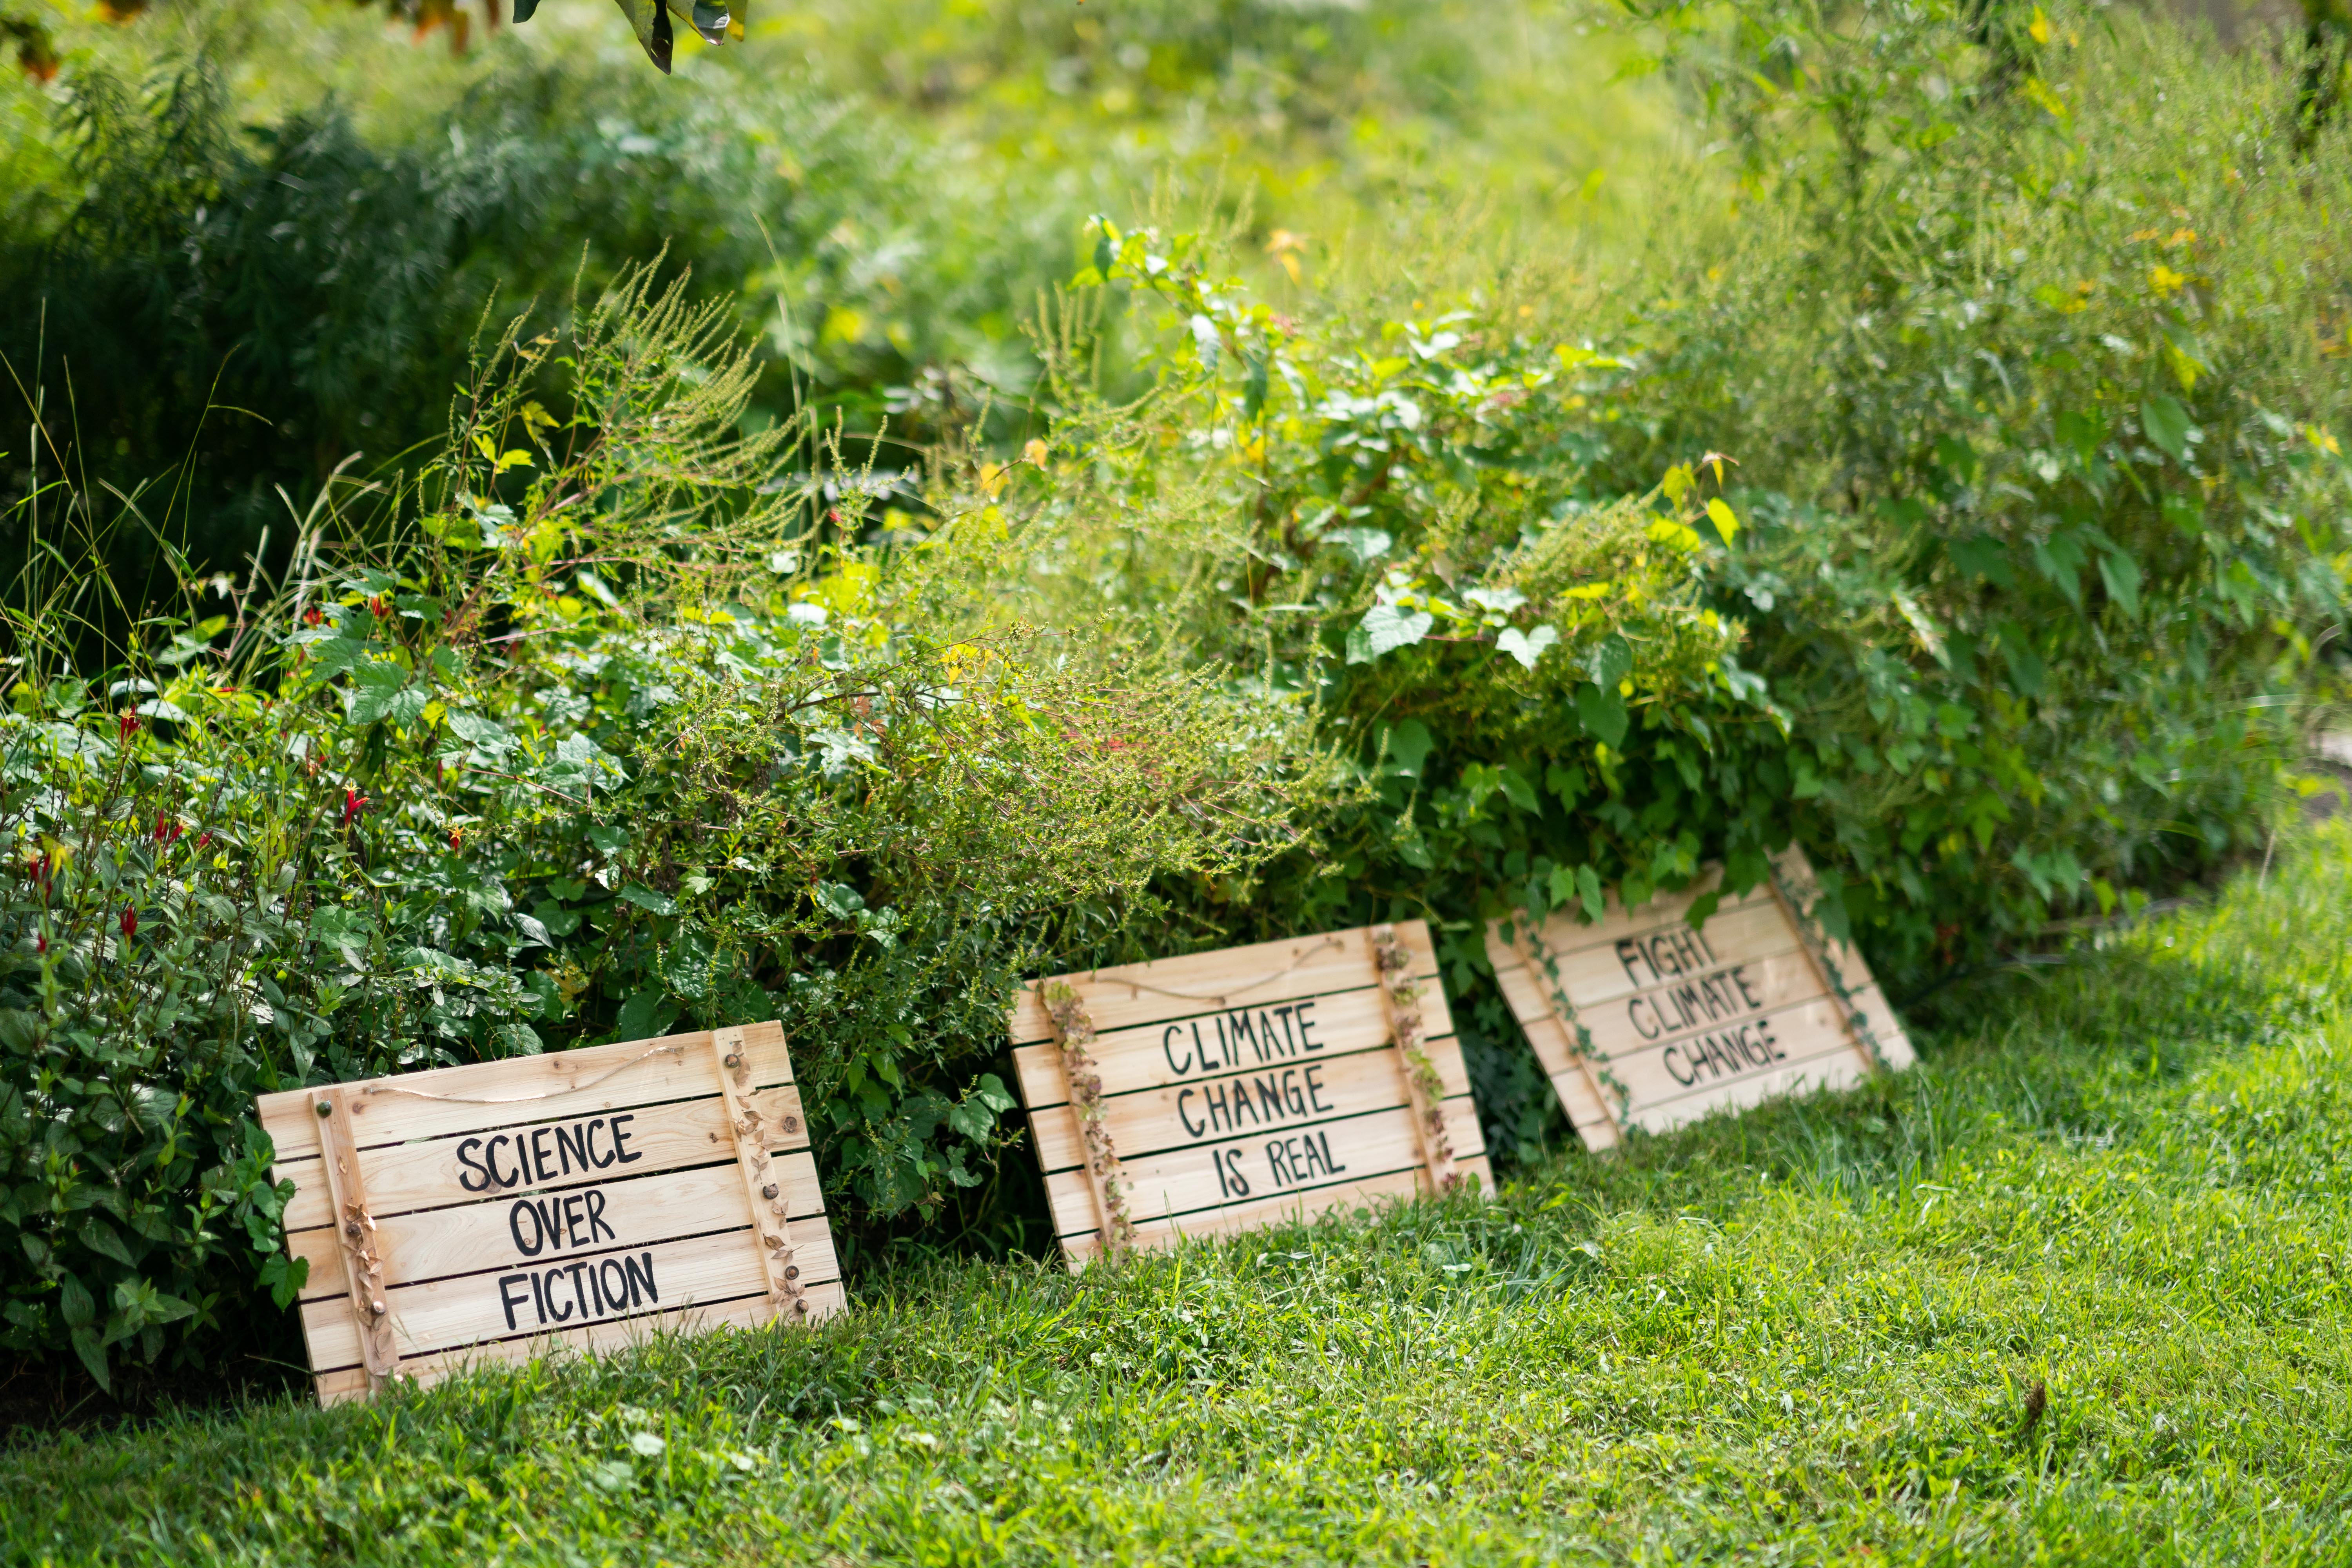 SCIENCE
OVER
FICTION
CLIMATE
CHANGE
IS REAL
FIGHT
CLIMATE
CHANGE